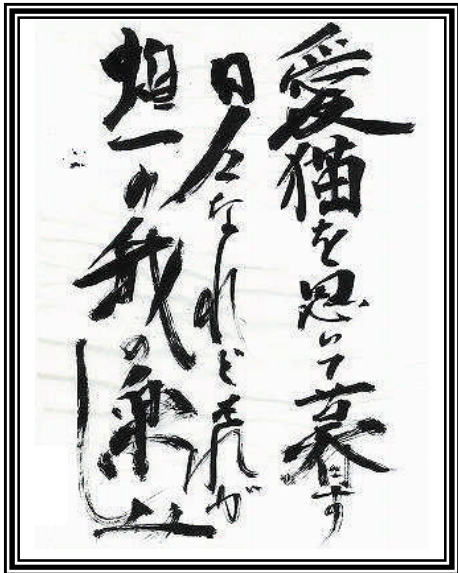 愛猫を思いて暮す
日々なれどそれが
唯一の我の楽しみ